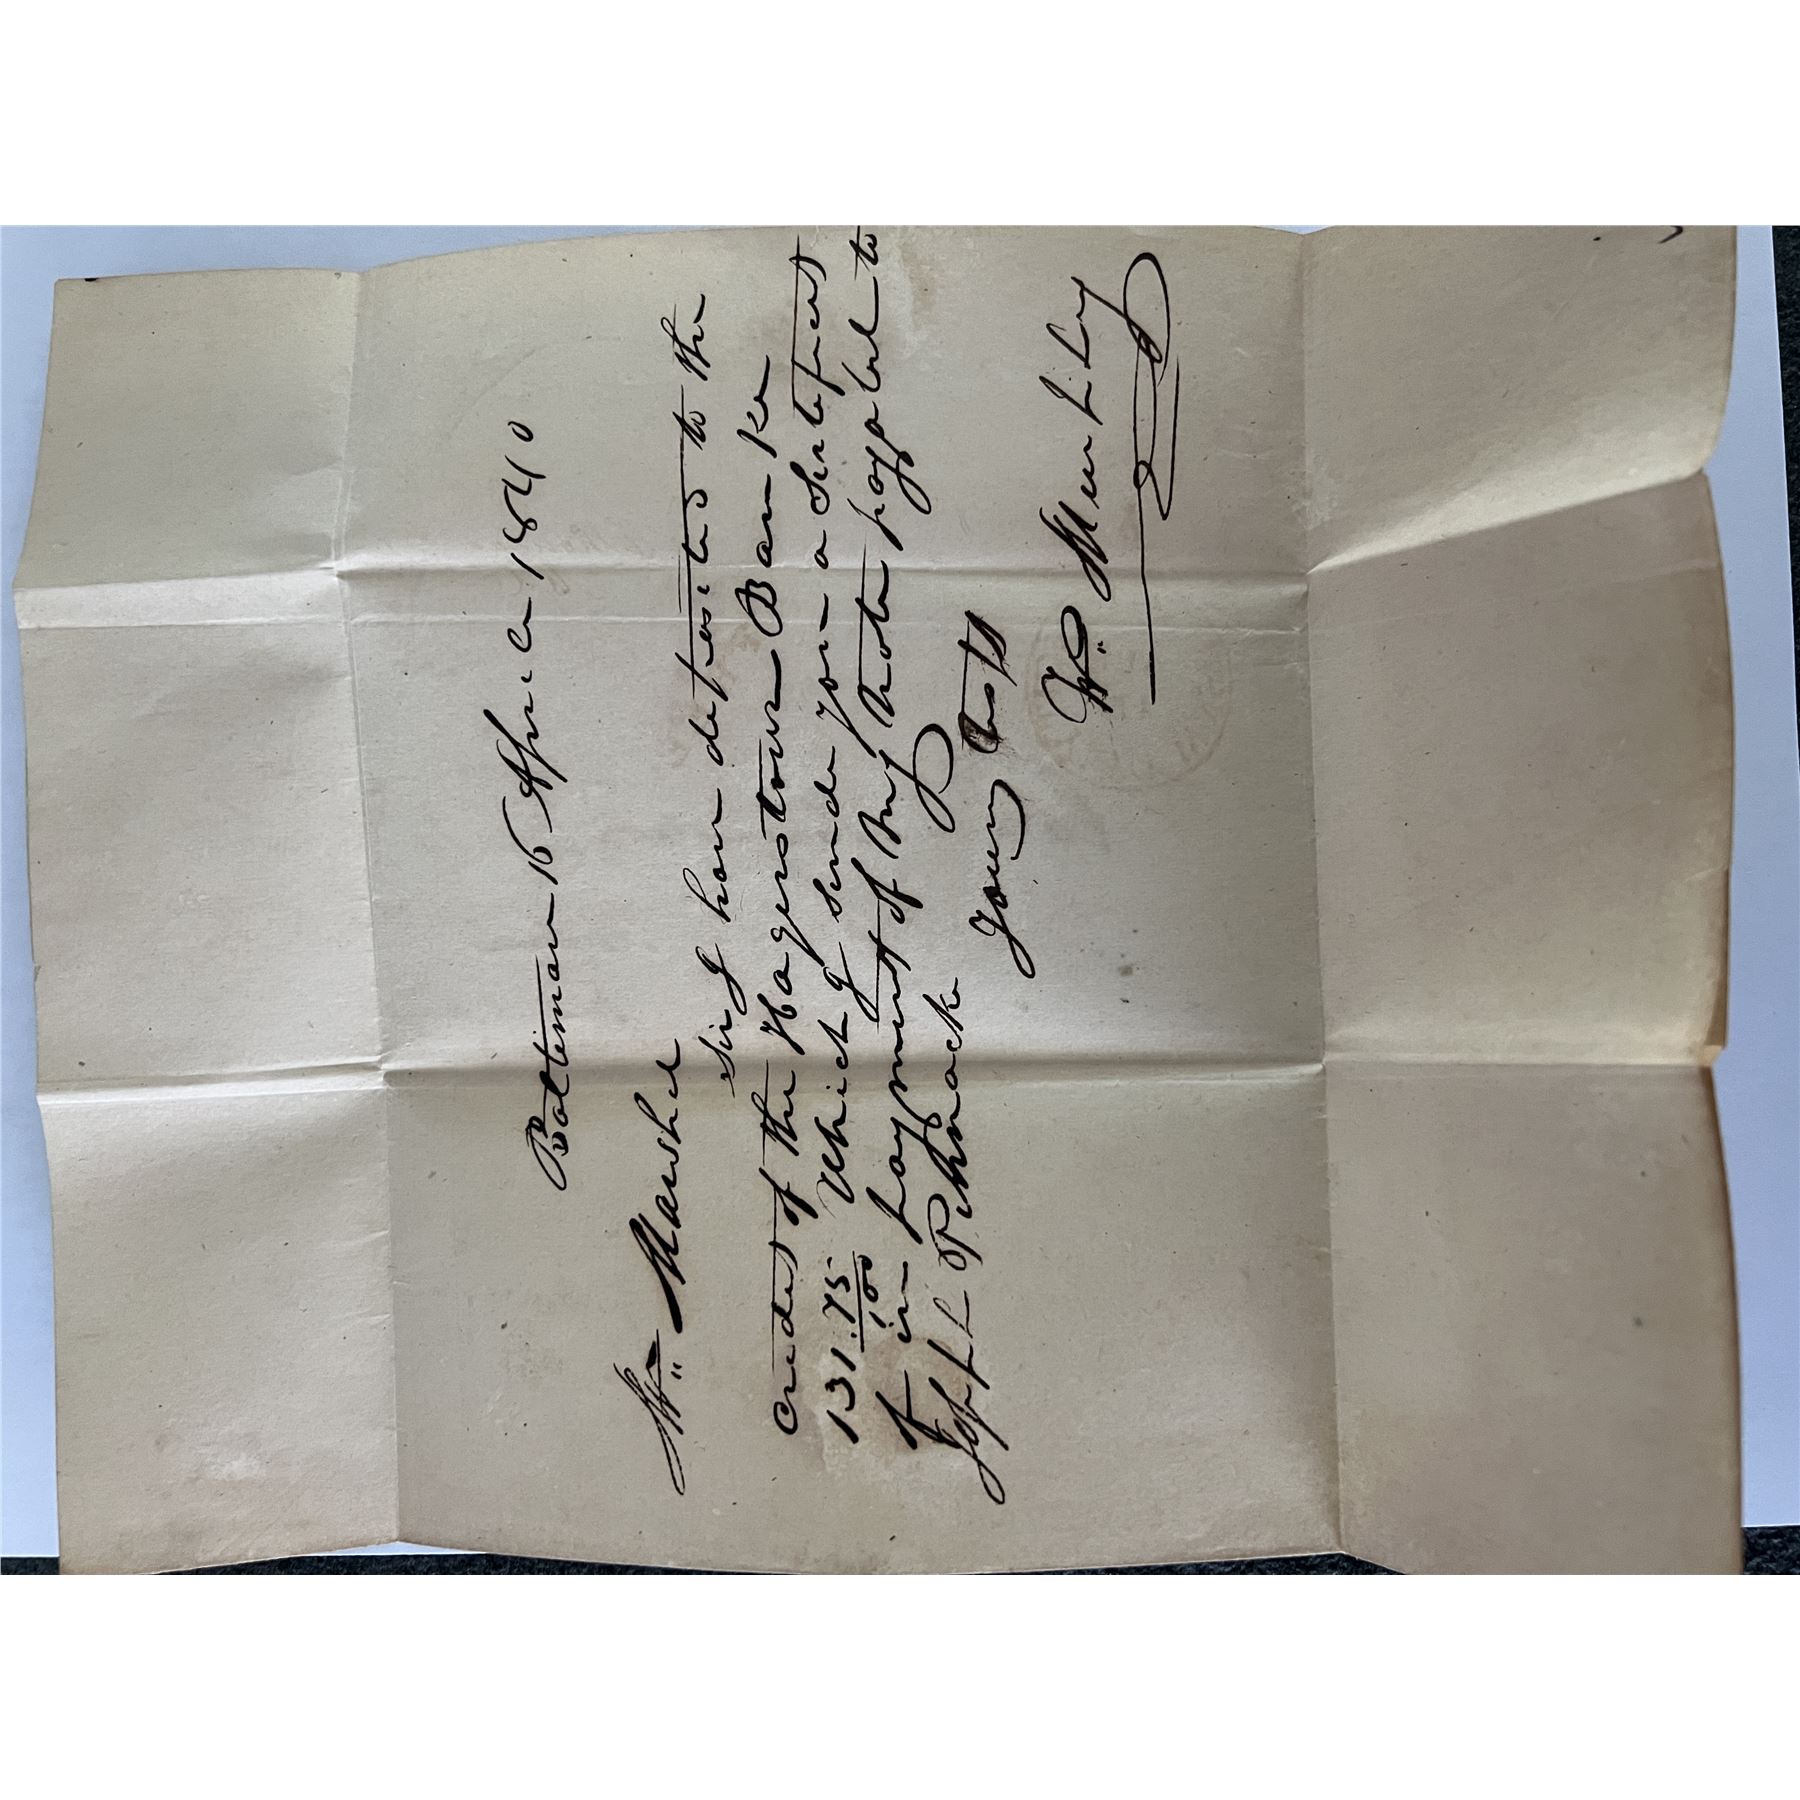 Baltimore 16 Aprile 1840
Wm Marshel
Sir I have deposited to the
Credit of the Hagerstown Banke
131.75/100 Which I sende you a Sertificet
of in payment of my note payabel to
Joseph P Knacke
Yours &c
Wm